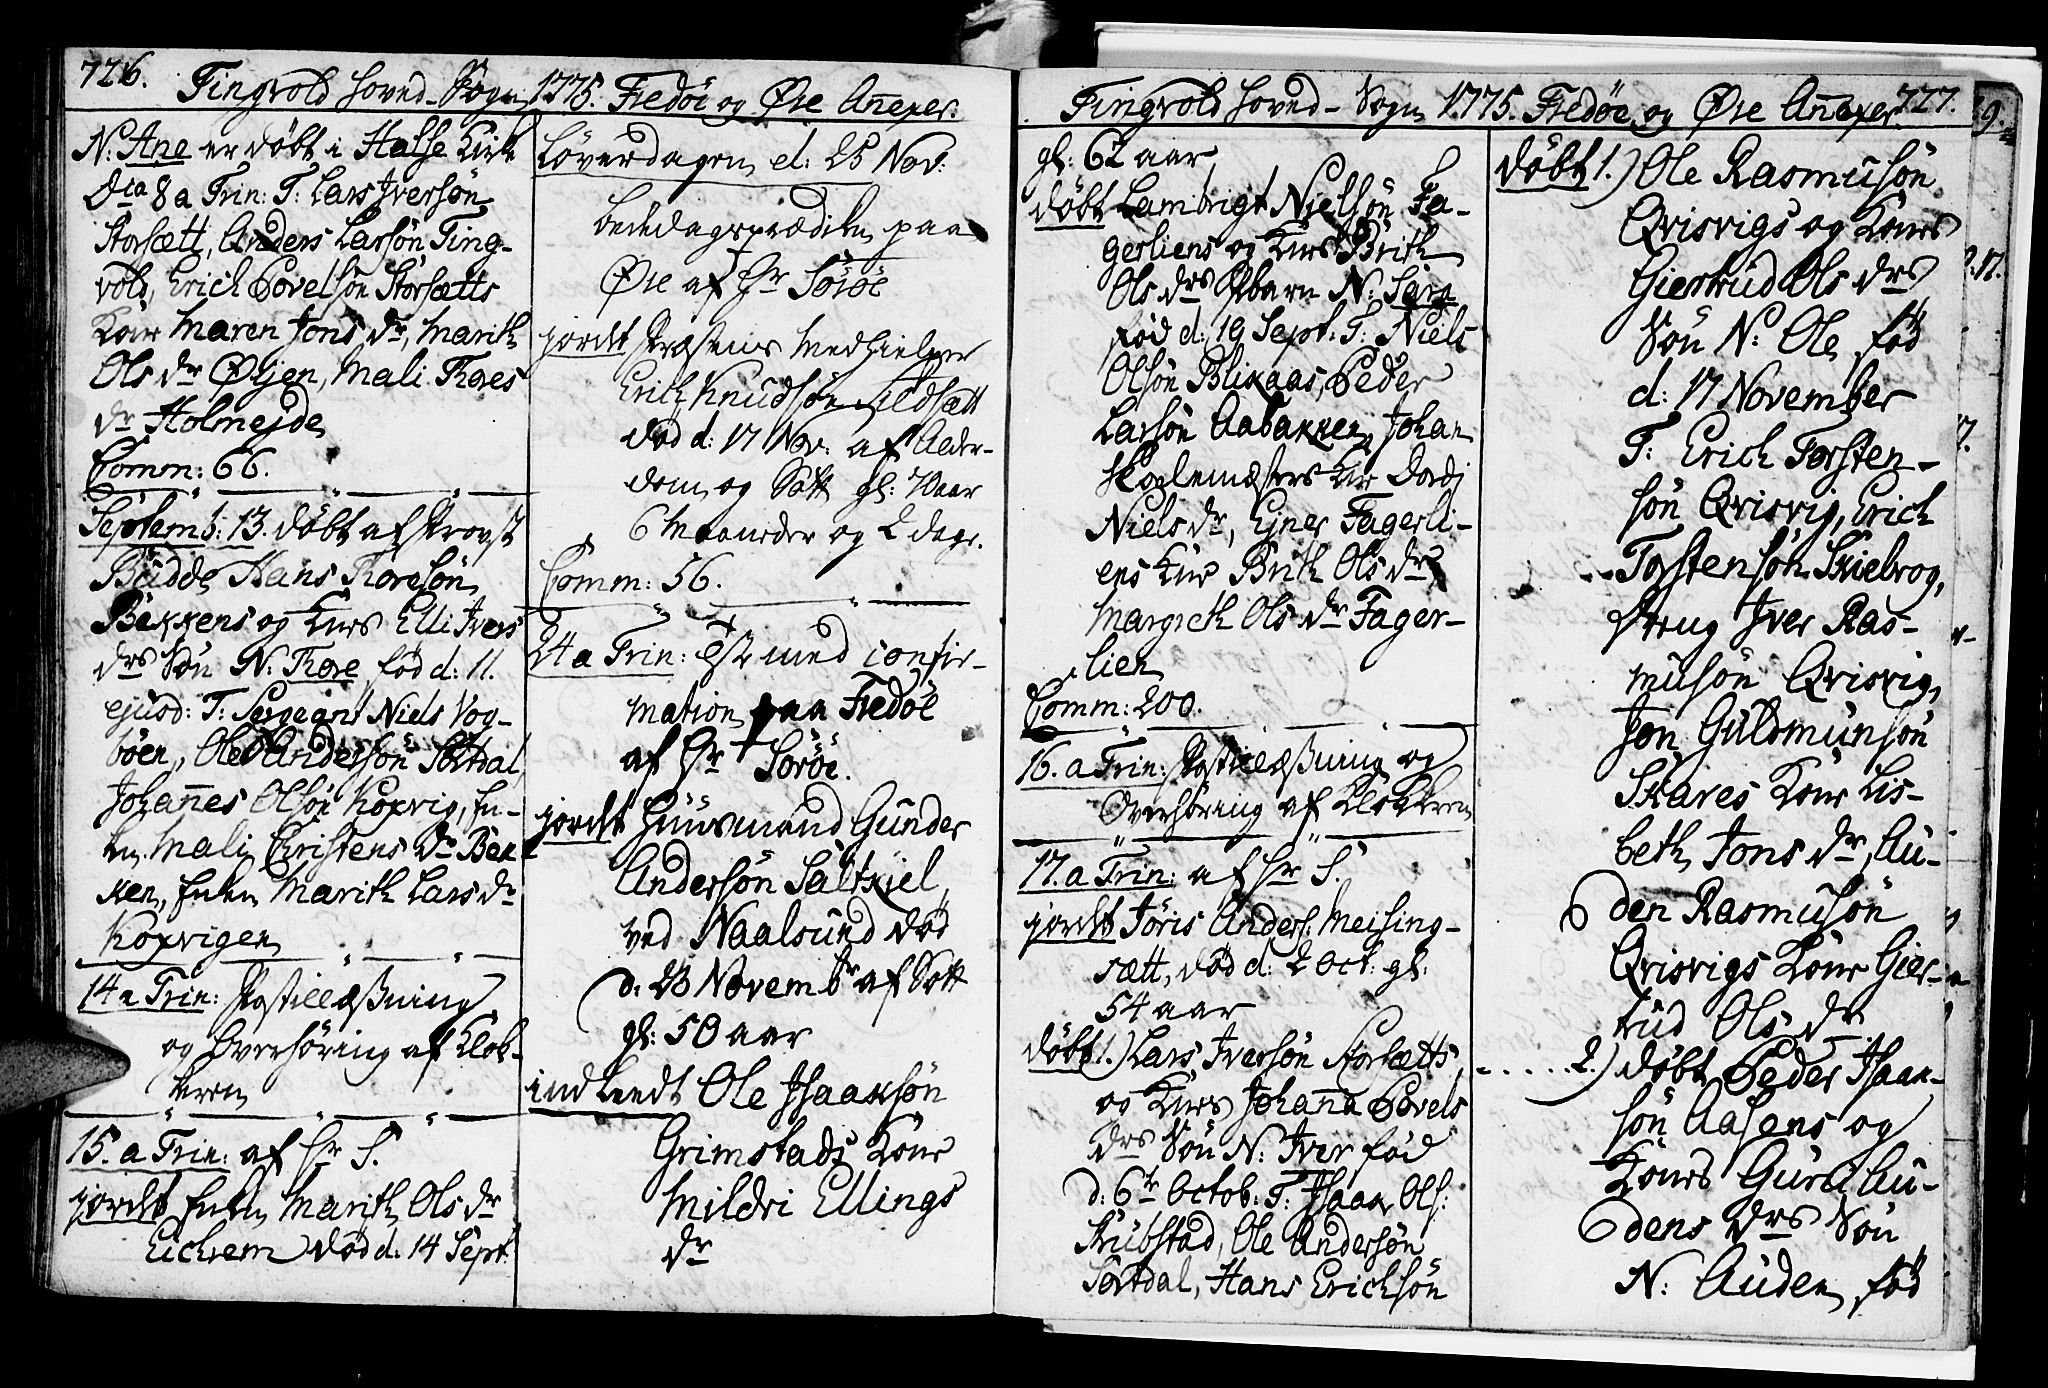 726. Tingvold Hoved-Sogn 1775. Fredöe og Øre Añexer.
N: Ane er döbt i Halse Kirke
Dca 8 a Trin: T: Lars Iversön
Storsætt, Anders Larsön Ting-
vold, Erich Povelsön Storsætts
Kone Maren Jons dr, Marith
Ols dr Øijen, Mali Thores
dr Holmejde
Comm: 66.
Septemb: 13. döbt af Provst
Büdde Hans Thoresön
Bekkens og Knes Elli Ivers
drs Sön N: Thore fød d: 11.
ejusd: T: Sergeant Niels Vog-
böen, Ole Andersön Sortdal,
Johañes Olsön Koxvig, En-
ken Mali Christens dr Bek
ken, Enken Marith Lars dr
Koxvigen
14 a Trin: Postillæsning
og Overhöring af Klok-
keren
15. a Trin: af Hr S.
jordt Enken Marith Ols dr
Eichrem död d: 14 Sept:
Löverdagen d: 25 Nov:
Bededagsprædiken paa
Øre af Hr Söröe
jordt Præstens Medhielper
Erich Knudsön Sildsætt
död d: 17 Nov: af Alder-
dom og Sott gl: 70 aar
6 Maaneder og 2 dage.
Comm: 56.
24 a Trin: Tieniste med confir-
mation paa Fredöe
af Hr Söröe.
jordt Hüüsmand Gunder
Andersön Saltkiel
ved Naalsund död
d: 23 Novembr af Sott
gl: 50 aar
indleedt Ole Isaaksön
Grimstads Kone
Mildri Ellings
dr
Tingvold Hoved-Sogn 1775. Fredöe og Øre Añexer. 727.
gl: 62 aar
döbt Lambrigt Nielsön Fa-
gerliens og Knes Brith
Ols drs Barn N:
fød d: 19 Sept. T: Niels
Olsön Blikaas, Peder
Larsön Aabakken, Johan
Skoglemesters Kne Dordi
Niels dr, Ejner Fagerli-
ens Kne Brith Ols dr
Margreth Ols dr Fager-
lien
Comm: 200.
16. a Trin: Postillæsning og
Overhöring af Klokkeren
17. a Trin: af Hr S.
jordt Jöris Anders: Meising-
sætt, död d: 2 Oct: gl:
54 aar
döbt 1.) Lars Iversön Storsætts
og Knes Johaña Povels
drs Sön N: Iver fød
d: 6te Octob: T: Isaak Ols:
Strübstad, Ole Andersön
Sortdal, Hans Erichsön
döbt 1.) Ole Rasmusön
Qvisvigs og Kones
Giertrud Ols drs
Sön N: Ole fød
d: 17 November
T: Erich Torsten-
sön Qvisvig, Erich
Torstensön Skielvog,
Dreng Iver Ras-
musön Qvisvig,
Jon Guldmunsön
Skares Kone Lis-
beth Jons dr, Au-
den Rasmusön
Qvisvigs Kone Gier-
trud Ols dr
2.) döbt Peder Isaak-
sön Aasens og
Kones Guru Au-
dens drs Sön
N: Auden, fød